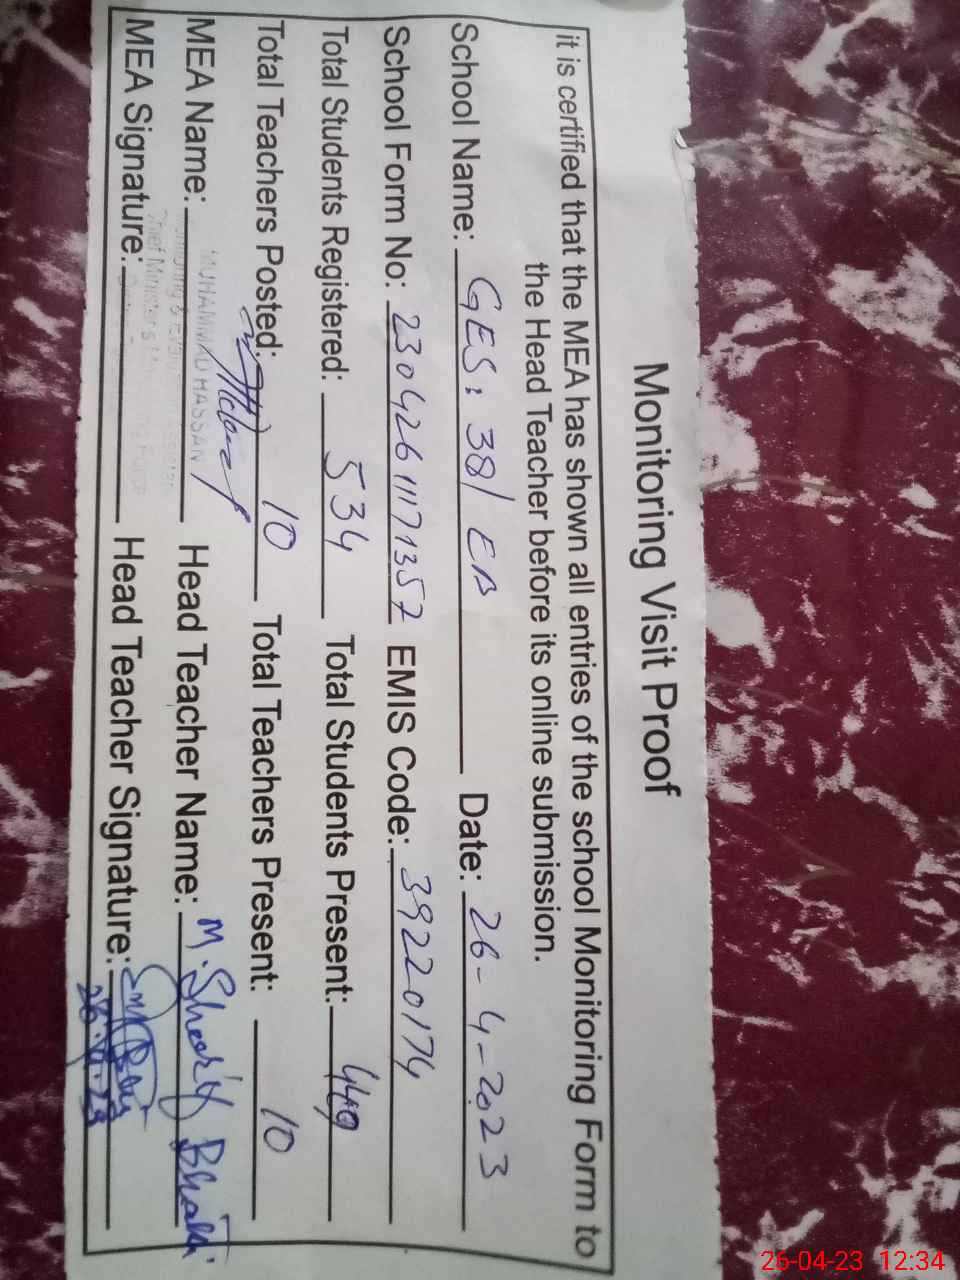 Monitoring Visit Proof
it is certified that the MEA has shown all entries of the school Monitoring Form to
the Head Teacher before its online submission.
School Name: GES: 38/ EB Date: 26-4-2023
School Form No: 230426111171357 EMIS Code: 39220174
Total Students Registered: 534 Total Students Present: 449
Total Teachers Posted: 10 Total Teachers Present: 10
MEA Name: MUHAMMAD HASSAN Head Teacher Name: M. Bhatti
MEA Signature: Head Teacher Signature:
Chief Minister's
26-04-23 12:34